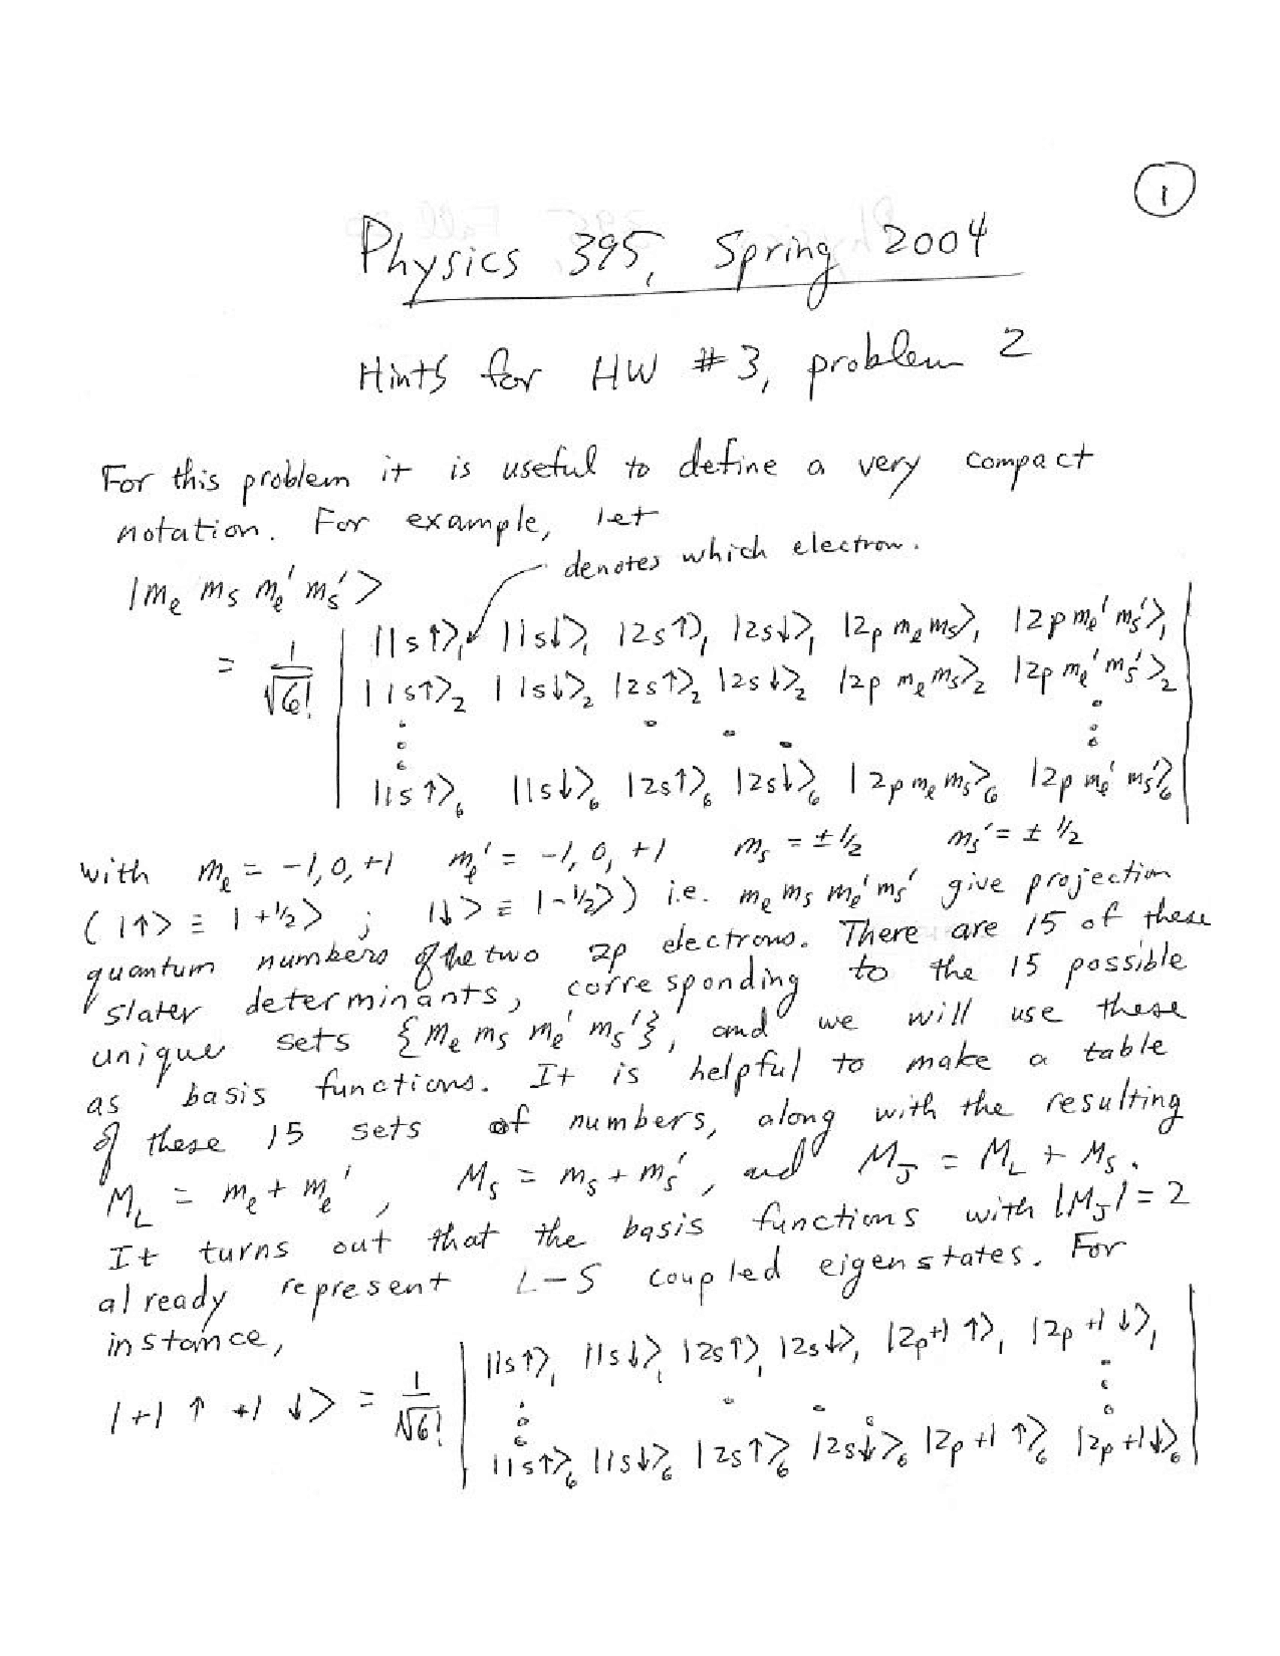 1
Physics 395, Spring 2004
Hints for HW #3, problem 2
For this problem it is useful to define a very compact
notation. For example, let
denotes which electron.
|mₗ mₛ mₗ' mₛ'>
|1s↑>₁ |1s↓>₁ |2s↑>₁ |2s↓>₁ |2p mₗ mₛ>₁ |2p mₗ' mₛ'>₁
= 1/√6! |1s↑>₂ |1s↓>₂ |2s↑>₂ |2s↓>₂ |2p mₗ mₛ>₂ |2p mₗ' mₛ'>₂
|1s↑>₆ |1s↓>₆ |2s↑>₆ |2s↓>₆ |2p mₗ mₛ>₆ |2p mₗ' mₛ'>₆
with mₗ = -1,0,+1 mₗ' = -1,0,+1 mₛ = ±1/2 mₛ' = ±1/2
(|↑> ≡ |+1/2> ; |↓> ≡ |-1/2>) i.e. mₗ mₛ mₗ' mₛ' give projection
quantum numbers of the two 2p electrons. There are 15 of these
slater determinants, corresponding to the 15 possible
unique sets {mₗ mₛ mₗ' mₛ'}, and we will use these
as basis functions. It is helpful to make a table
of these 15 sets of numbers, along with the resulting
M_L = mₗ + mₗ', M_S = mₛ + mₛ', and M_J = M_L + M_S.
It turns out that the basis functions with |M_J| = 2
already represent L-S coupled eigenstates. For
instance,
|1s↑>₁ |1s↓>₁ |2s↑>₁ |2s↓>₁ |2p +1 ↑>₁ |2p +1 ↓>₁
|+1 ↑ +1 ↓> = 1/√6!
|1s↑>₆ |1s↓>₆ |2s↑>₆ |2s↓>₆ |2p +1 ↑>₆ |2p +1 ↓>₆